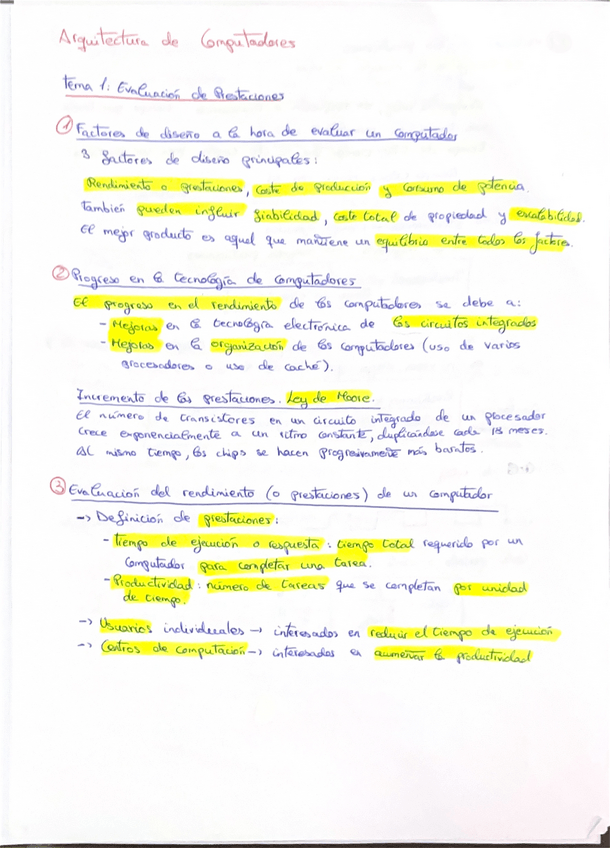 Arquitectura de Computadores
Tema 1: Evaluación de Prestaciones
① Factores de diseño a la hora de evaluar un computador
3 factores de diseño principales:
Rendimiento o prestaciones, coste de producción y consumo de potencia.
También pueden influir fiabilidad, coste total de propiedad y escalabilidad.
El mejor producto es aquel que mantiene un equilibrio entre todos los factores.
② Progreso en la tecnología de computadores
El progreso en el rendimiento de los computadores se debe a:
- Mejoras en la tecnología electrónica de los circuitos integrados
- Mejoras en la organización de los computadores (uso de varios
procesadores o uso de caché).
Incremento de las prestaciones. Ley de Moore.
El número de transistores en un circuito integrado de un procesador
crece exponencialmente a un ritmo constante, duplicándose cada 18 meses.
Al mismo tiempo, los chips se hacen progresivamente más baratos.
③ Evaluación del rendimiento (o prestaciones) de un computador
-> Definición de prestaciones:
- Tiempo de ejecución o respuesta: tiempo total requerido por un
computador para completar una tarea.
- Productividad: número de tareas que se completan por unidad
de tiempo.
-> Usuarios individuales -> interesados en reducir el tiempo de ejecución
-> Centros de computación -> interesados en aumentar la productividad